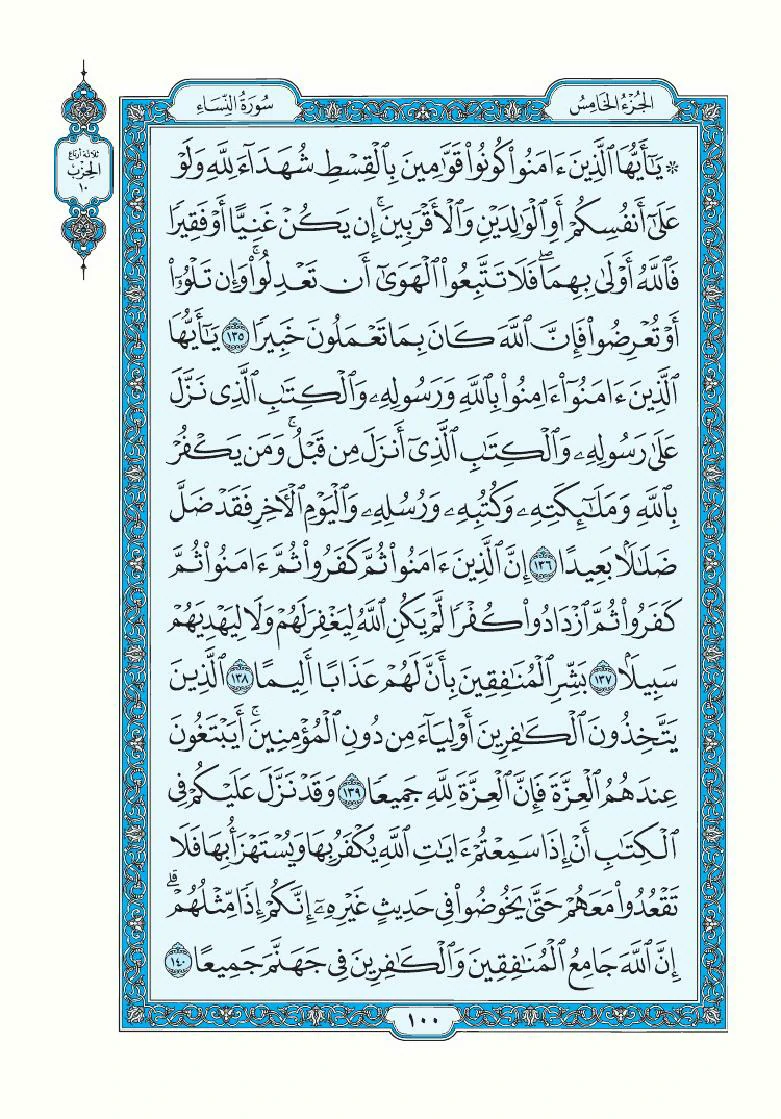 الجزء الخامس
سورة النساء
ثلاثة أرباع
الحزب
١٠
۞ يَـٰٓأَيُّهَا ٱلَّذِينَ ءَامَنُوا۟ كُونُوا۟ قَوَّٰمِينَ بِٱلْقِسْطِ شُهَدَآءَ لِلَّهِ وَلَوْ
عَلَىٰٓ أَنفُسِكُمْ أَوِ ٱلْوَٰلِدَيْنِ وَٱلْأَقْرَبِينَ ۚ إِن يَكُنْ غَنِيًّا أَوْ فَقِيرًا
فَٱللَّهُ أَوْلَىٰ بِهِمَا ۖ فَلَا تَتَّبِعُوا۟ ٱلْهَوَىٰٓ أَن تَعْدِلُوا۟ ۚ وَإِن تَلْوُۥٓا۟
أَوْ تُعْرِضُوا۟ فَإِنَّ ٱللَّهَ كَانَ بِمَا تَعْمَلُونَ خَبِيرًا ١٣٥ يَـٰٓأَيُّهَا
ٱلَّذِينَ ءَامَنُوٓا۟ ءَامِنُوا۟ بِٱللَّهِ وَرَسُولِهِۦ وَٱلْكِتَـٰبِ ٱلَّذِى نَزَّلَ
عَلَىٰ رَسُولِهِۦ وَٱلْكِتَـٰبِ ٱلَّذِىٓ أَنزَلَ مِن قَبْلُ ۚ وَمَن يَكْفُرْ
بِٱللَّهِ وَمَلَـٰٓئِكَتِهِۦ وَكُتُبِهِۦ وَرُسُلِهِۦ وَٱلْيَوْمِ ٱلْـَٔاخِرِ فَقَدْ ضَلَّ
ضَلَـٰلًۢا بَعِيدًا ١٣٦ إِنَّ ٱلَّذِينَ ءَامَنُوا۟ ثُمَّ كَفَرُوا۟ ثُمَّ ءَامَنُوا۟ ثُمَّ
كَفَرُوا۟ ثُمَّ ٱزْدَادُوا۟ كُفْرًا لَّمْ يَكُنِ ٱللَّهُ لِيَغْفِرَ لَهُمْ وَلَا لِيَهْدِيَهُمْ
سَبِيلًۢا ١٣٧ بَشِّرِ ٱلْمُنَـٰفِقِينَ بِأَنَّ لَهُمْ عَذَابًا أَلِيمًا ١٣٨ ٱلَّذِينَ
يَتَّخِذُونَ ٱلْكَـٰفِرِينَ أَوْلِيَآءَ مِن دُونِ ٱلْمُؤْمِنِينَ ۚ أَيَبْتَغُونَ
عِندَهُمُ ٱلْعِزَّةَ فَإِنَّ ٱلْعِزَّةَ لِلَّهِ جَمِيعًا ١٣٩ وَقَدْ نَزَّلَ عَلَيْكُمْ فِى
ٱلْكِتَـٰبِ أَنْ إِذَا سَمِعْتُمْ ءَايَـٰتِ ٱللَّهِ يُكْفَرُ بِهَا وَيُسْتَهْزَأُ بِهَا فَلَا
تَقْعُدُوا۟ مَعَهُمْ حَتَّىٰ يَخُوضُوا۟ فِى حَدِيثٍ غَيْرِهِۦٓ ۚ إِنَّكُمْ إِذًا مِّثْلُهُمْ ۗ
إِنَّ ٱللَّهَ جَامِعُ ٱلْمُنَـٰفِقِينَ وَٱلْكَـٰفِرِينَ فِى جَهَنَّمَ جَمِيعًا ١٤٠
١٠٠